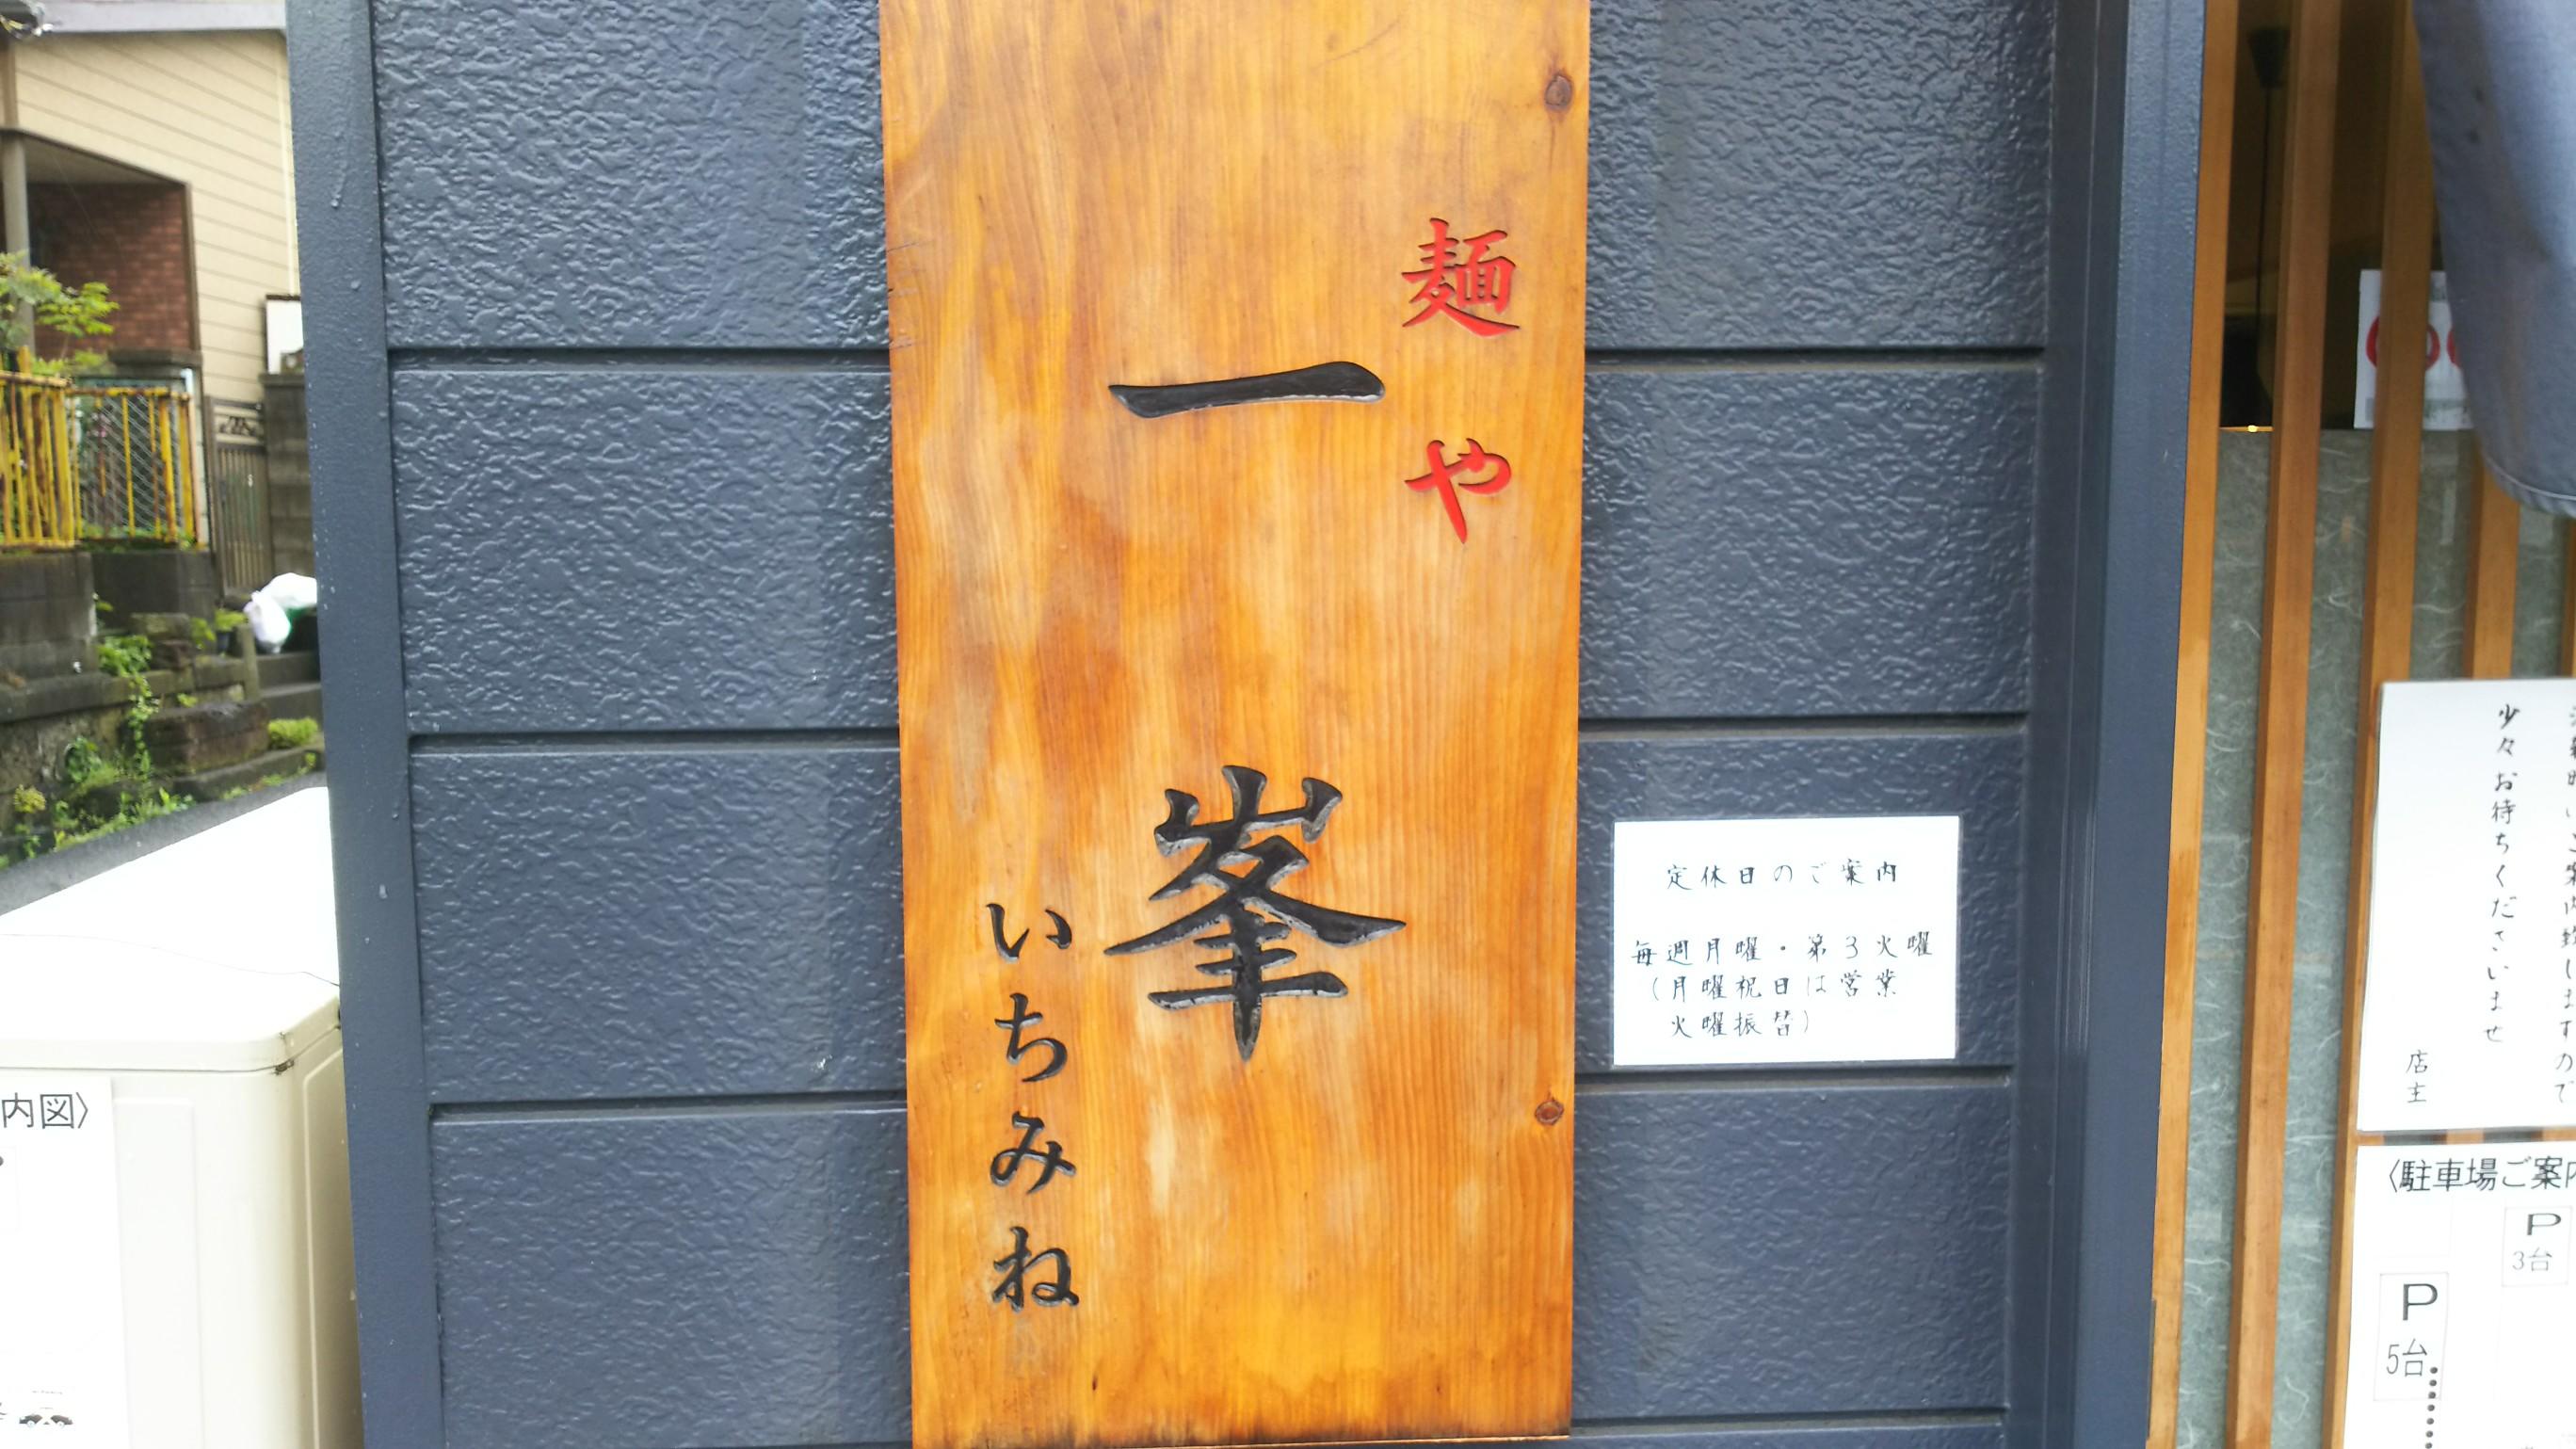 麺や
一峯
いちみね
定休日のご案内
毎週月曜・第3火曜
(月曜祝日は営業
火曜振替)
少々お待ちくださいませ
店主
〈駐車場ご案内
P
3台
P
5台
内図〉